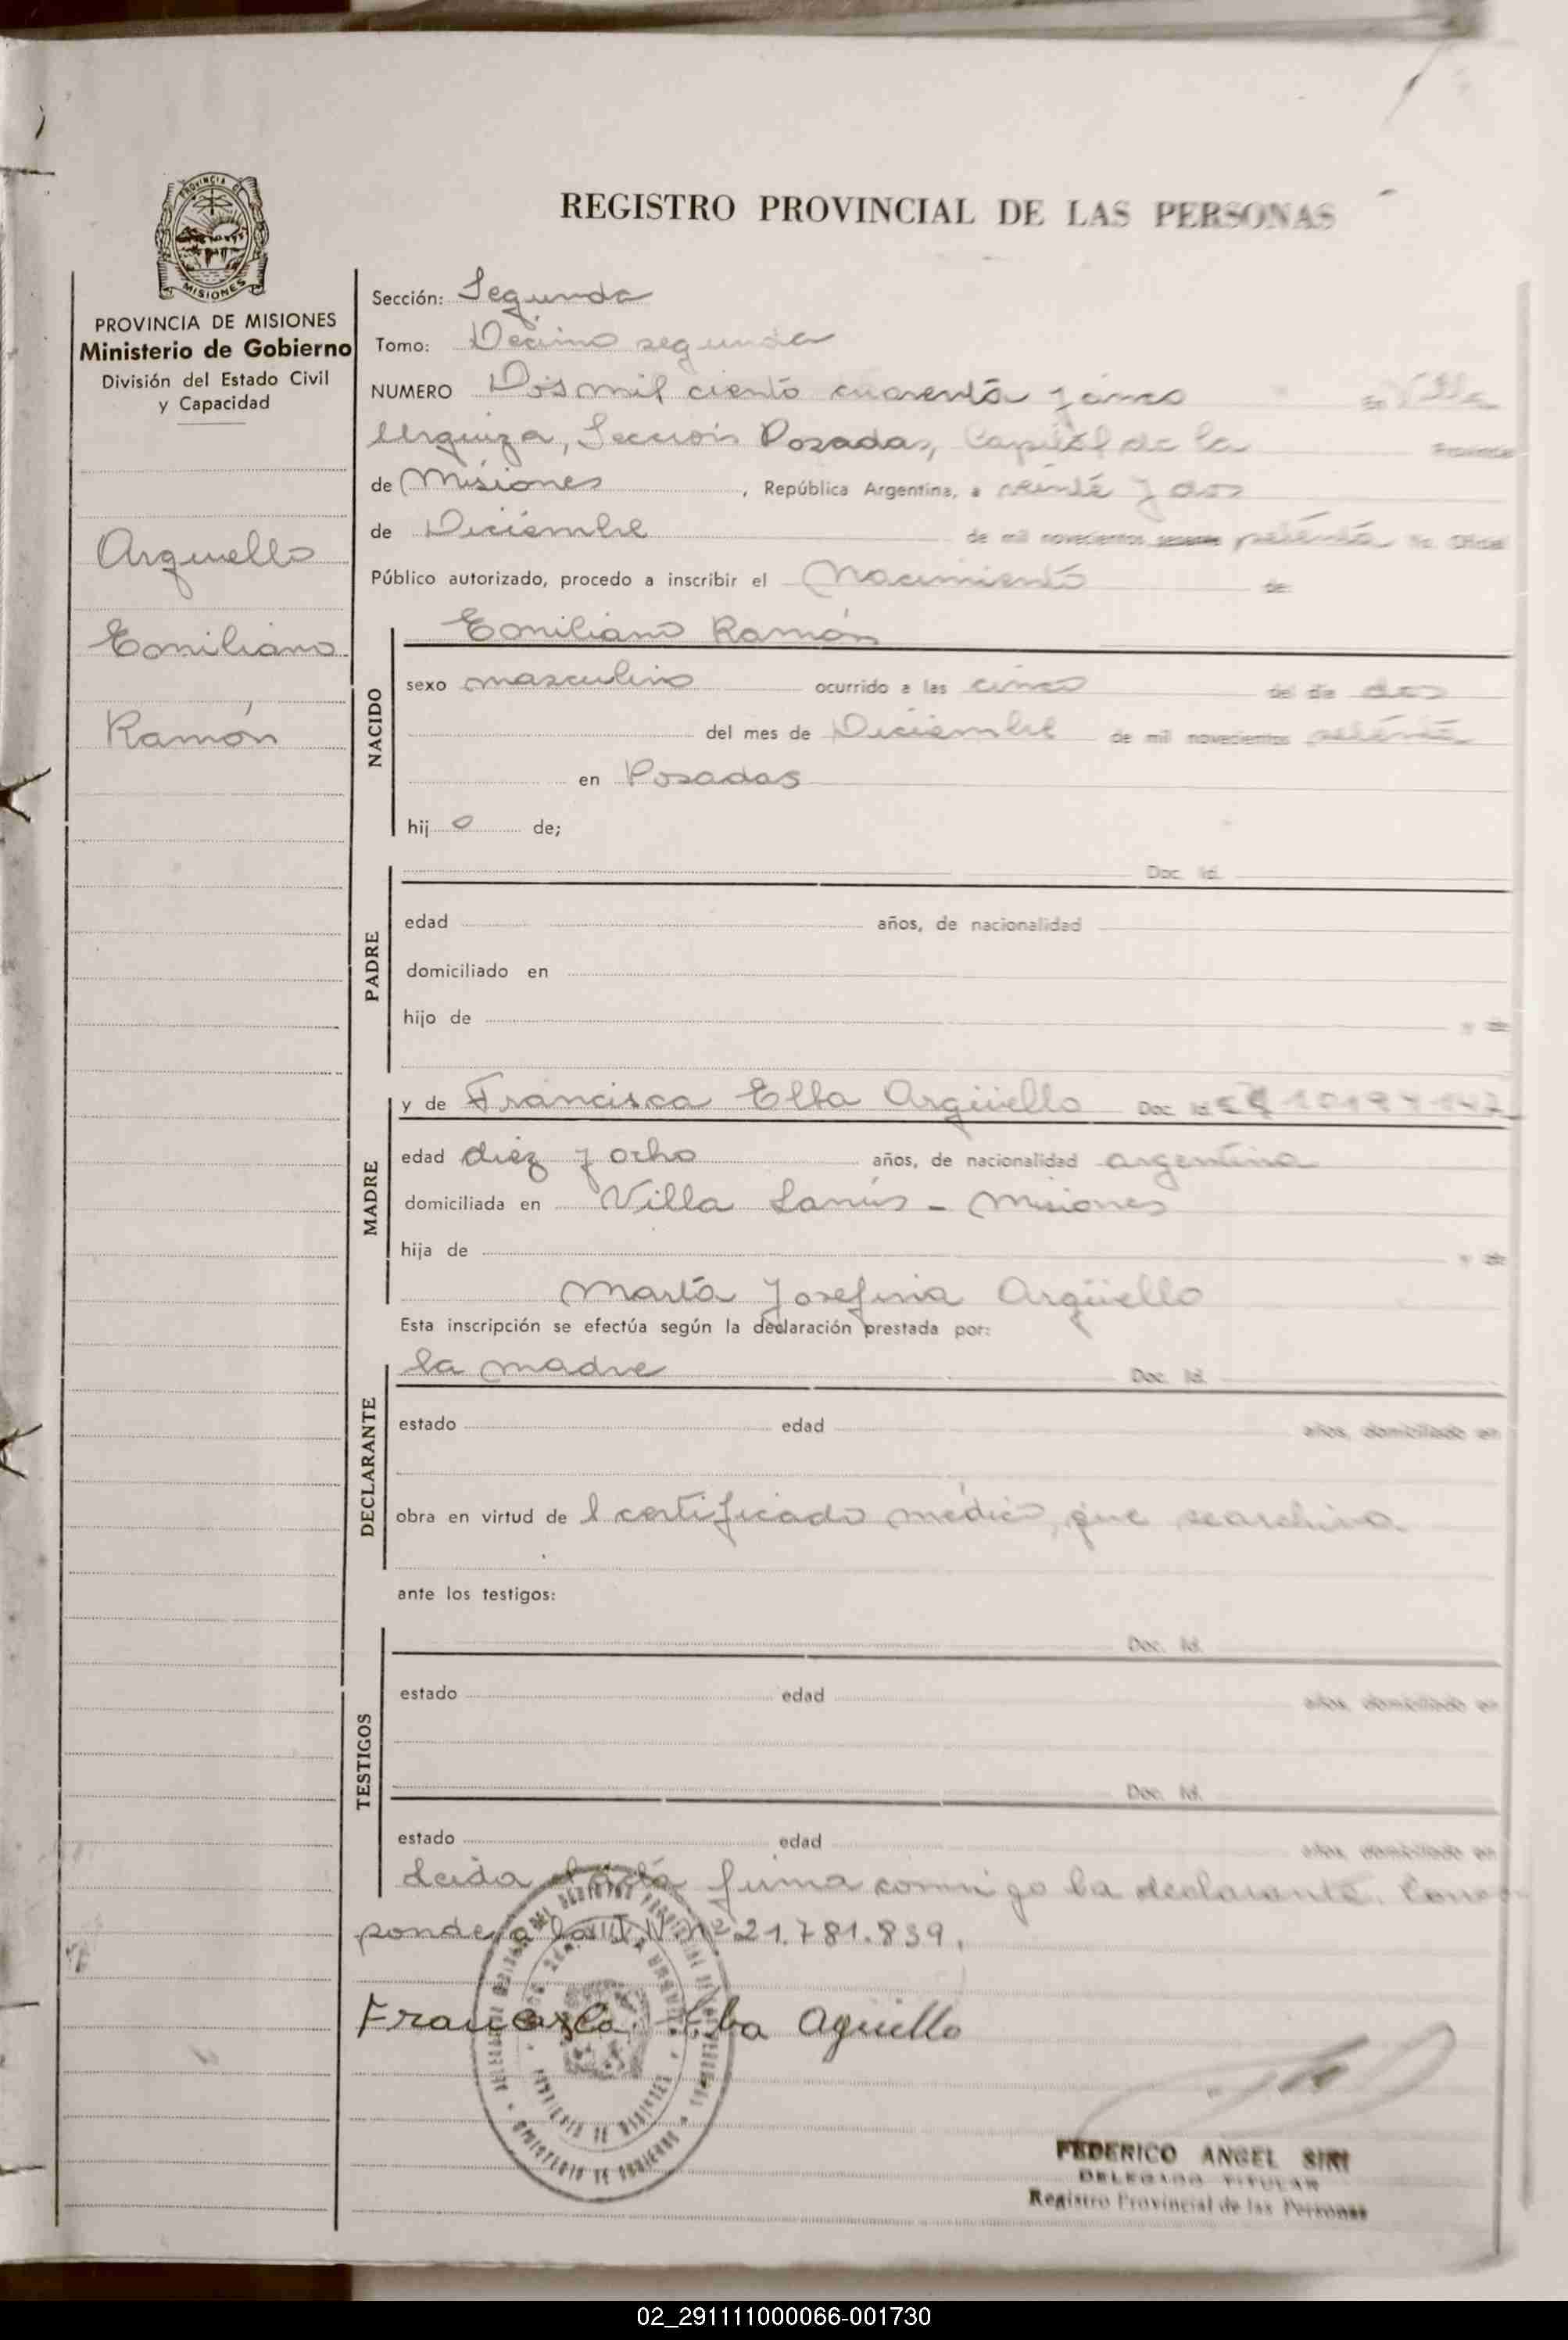 PROVINCIA DE
MISIONES
REGISTRO PROVINCIAL DE LAS PERSONAS
PROVINCIA DE MISIONES
Ministerio de Gobierno
División del Estado Civil
y Capacidad
Arguello
Emiliano
Ramón
Sección: Segunda
Tomo: Décimo segunda
NUMERO Dos mil ciento cuarenta y cinco En Villa
Urquiza, Sección Posadas, Capital de la Provincia
de Misiones, República Argentina, a veinte y dos
de Diciembre de mil novecientos sesenta setenta Yo, Oficial
Público autorizado, procedo a inscribir el Nacimiento de:
NACIDO
Emiliano Ramón
sexo masculino ocurrido a las cinco del día dos
del mes de Diciembre de mil novecientos setenta
en Posadas
hij o de;
PADRE
Doc. Id.
edad años, de nacionalidad
domiciliado en
hijo de y de
MADRE
y de Francisca Elba Argüello Doc. Id.
edad diez y ocho años, de nacionalidad argentina
domiciliada en Villa Lanús - Misiones
hija de y de
Marta Josefina Argüello
Esta inscripción se efectúa según la declaración prestada por:
DECLARANTE
la madre Doc. Id.
estado edad años, domiciliado en
obra en virtud de l certificado médico, que se archiva.
ante los testigos:
TESTIGOS
Doc. Id.
estado edad años, domiciliado en
Doc. Id.
estado edad años, domiciliado en
Leida el acta firma conmigo la declarante. Corres
ponde a la Nº 21.781.839.
Francisca Elba Agüello
FEDERICO ANGEL SIRI
DELEGADO TITULAR
Registro Provincial de las Personas
02_291111000066-001730